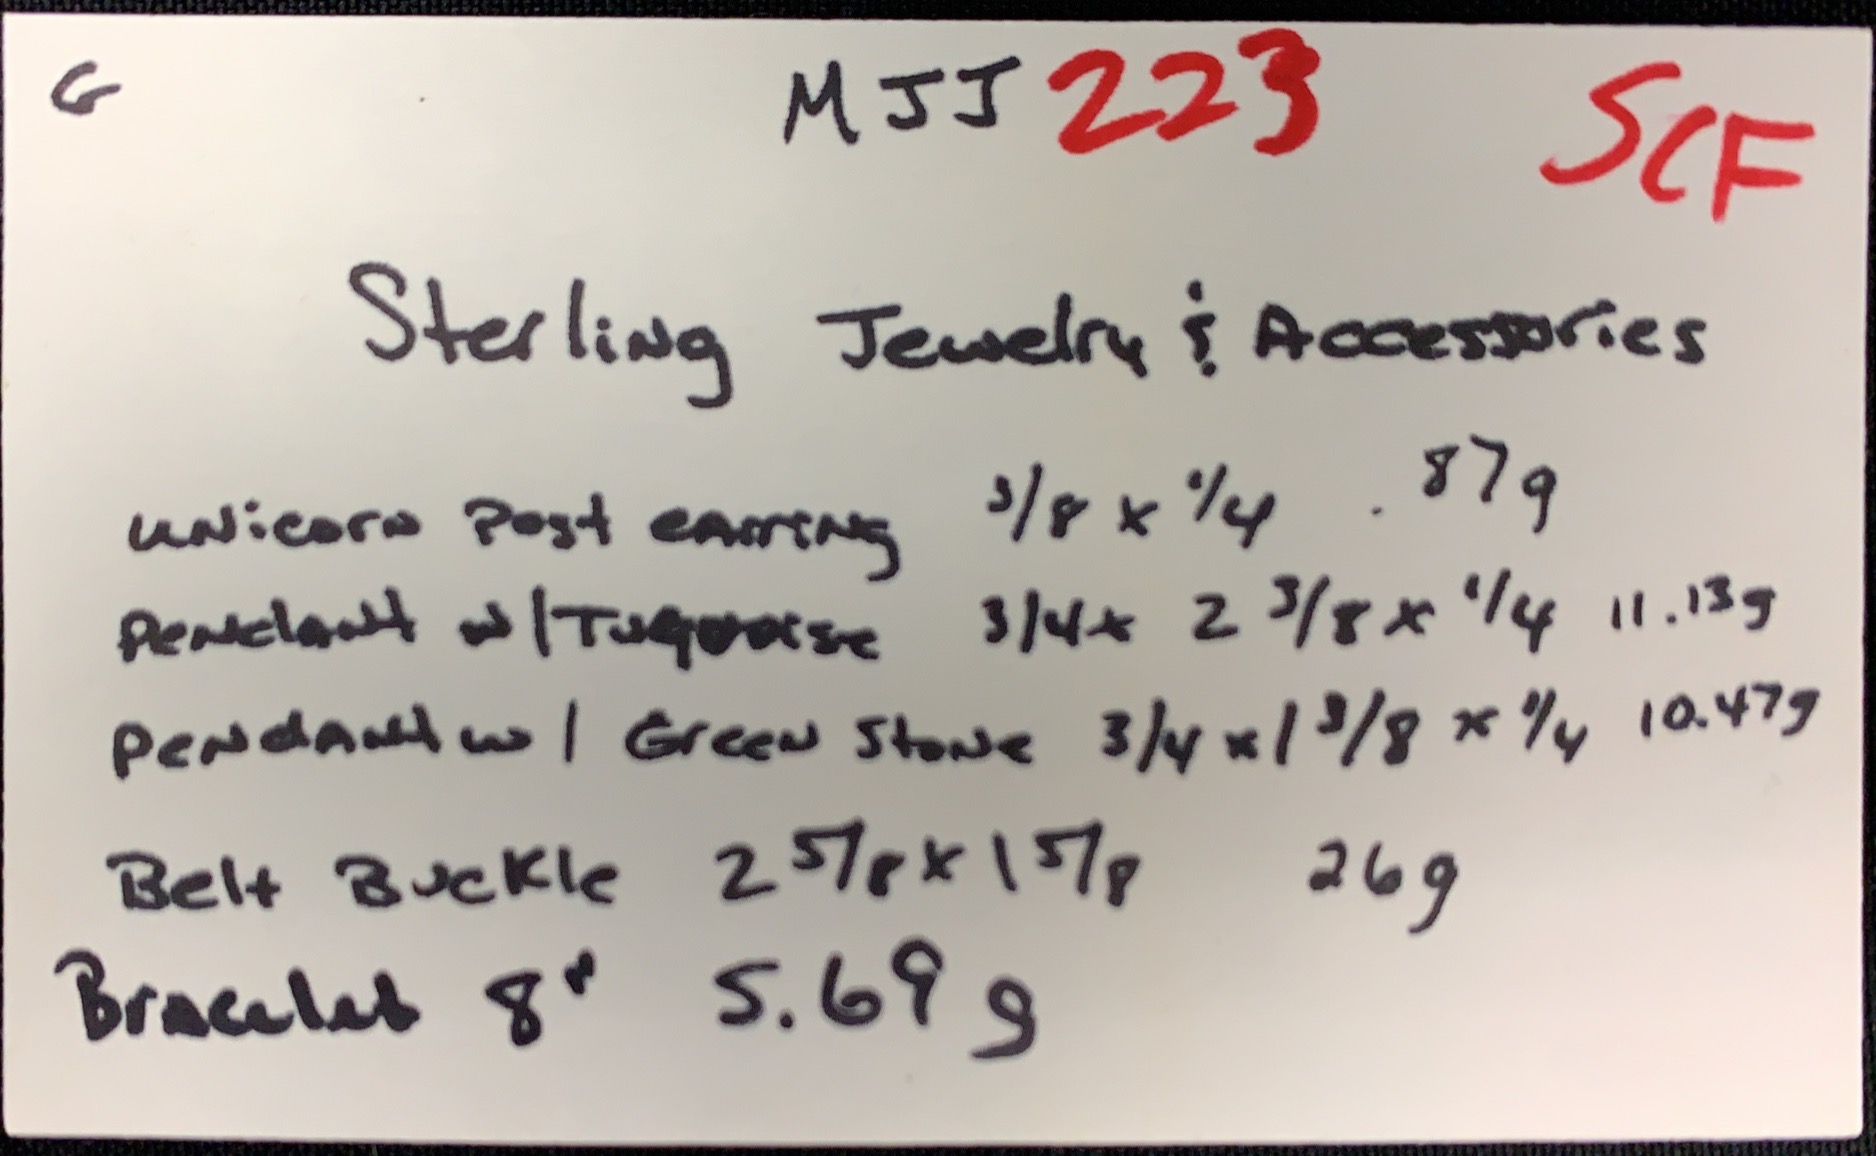 G MJJ 223 SCF
Sterling Jewelry & Accessories
unicorn Post earring 3/8 x 1/4 .87g
Pendant w/Tuquoise 3/4 x 2 3/8 x 1/4 11.13g
Pendant w/ Green Stone 3/4 x 1 3/8 x 1/4 10.47g
Belt Buckle 2 5/8 x 1 5/8 26g
Bracelet 8" 5.69 g